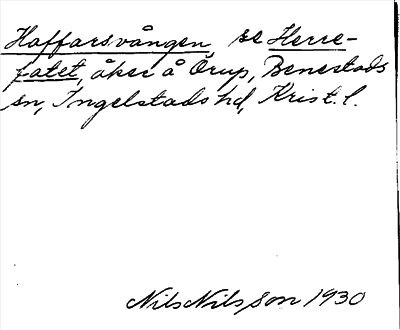 Haffarsvången se Herre-
fatet, åker å Örup, Benestads
sn, Ingelstads hd, Krist. l.
Nils Nilsson 1930